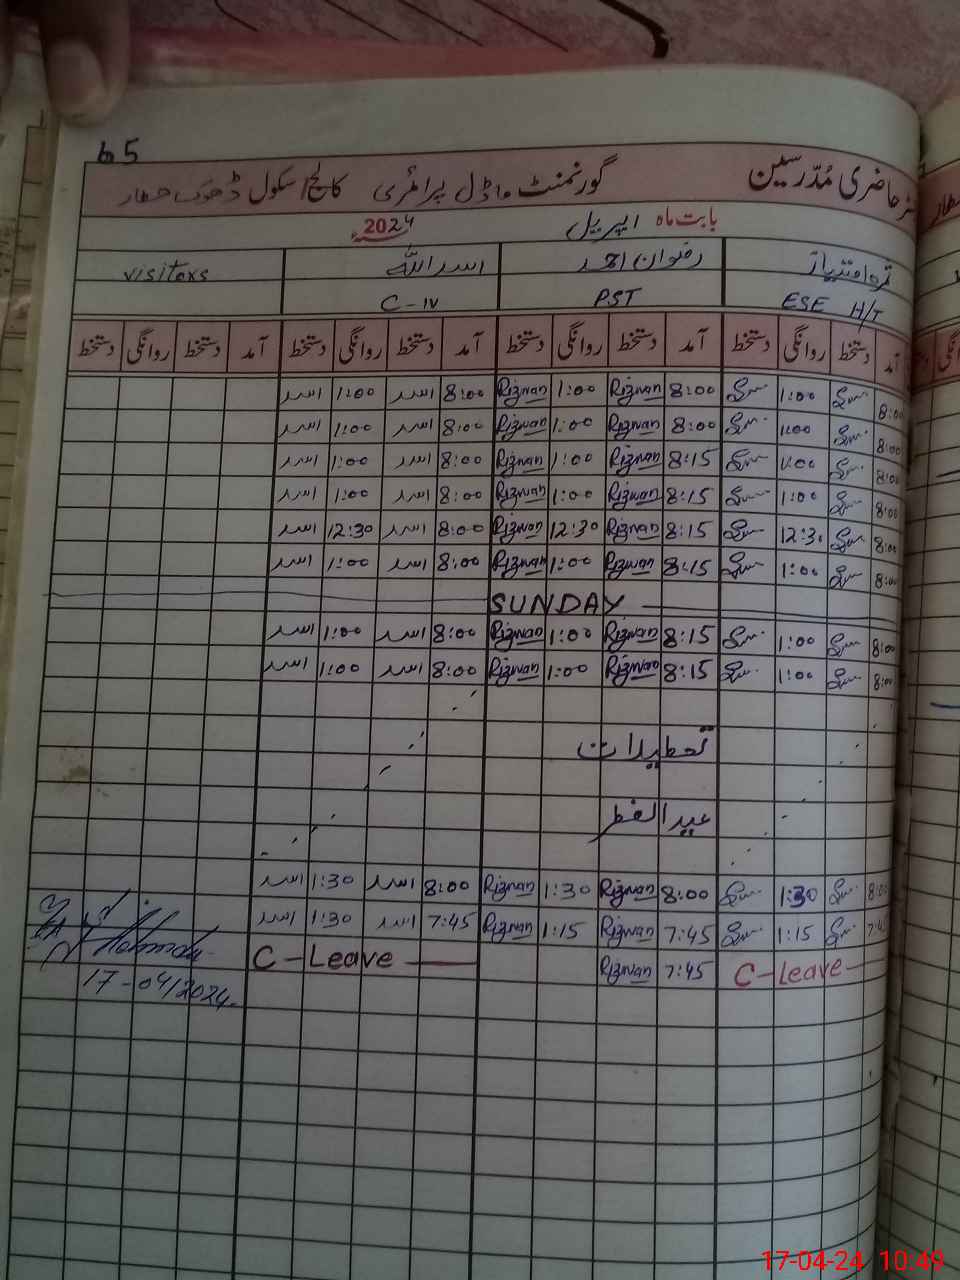 65
رجسٹر حاضری مُدّرسین گورنمنٹ ماڈل پرائمری کالج/سکول ڈھوک
بابت ماہ اپریل 2024ء
رضوان احمد اسد اللہ visitors
ESE H/T PST C-IV
آمد دستخط روانگی دستخط آمد دستخط روانگی دستخط آمد دستخط روانگی دستخط آمد دستخط روانگی دستخط
8:00 1:00 8:00 Rizwan 1:00 Rizwan 8:00 اسد 1:00 اسد
8:00 1:00 8:00 Rizwan 1:00 Rizwan 8:00 اسد 1:00 اسد
8:00 1:00 8:15 Rizwan 1:00 Rizwan 8:00 اسد 1:00 اسد
8:00 1:00 8:15 Rizwan 1:00 Rizwan 8:00 اسد 1:00 اسد
8:00 12:30 8:15 Rizwan 12:30 Rizwan 8:00 اسد 12:30 اسد
8:00 1:00 8:15 Rizwan 1:00 Rizwan 8:00 اسد 1:00 اسد
SUNDAY
8:00 1:00 8:15 Rizwan 1:00 Rizwan 8:00 اسد 1:00 اسد
8:00 1:00 8:15 Rizwan 1:00 Rizwan 8:00 اسد 1:00 اسد
تعطیلات
عید الفطر
8:00 1:30 8:00 Rizwan 1:30 Rizwan 8:00 اسد 1:30 اسد
7:45 1:15 7:45 Rizwan 1:15 Rizwan 7:45 اسد 1:30 اسد
C-Leave 7:45 Rizwan C-Leave
17-04/2024
17-04-24 10:49